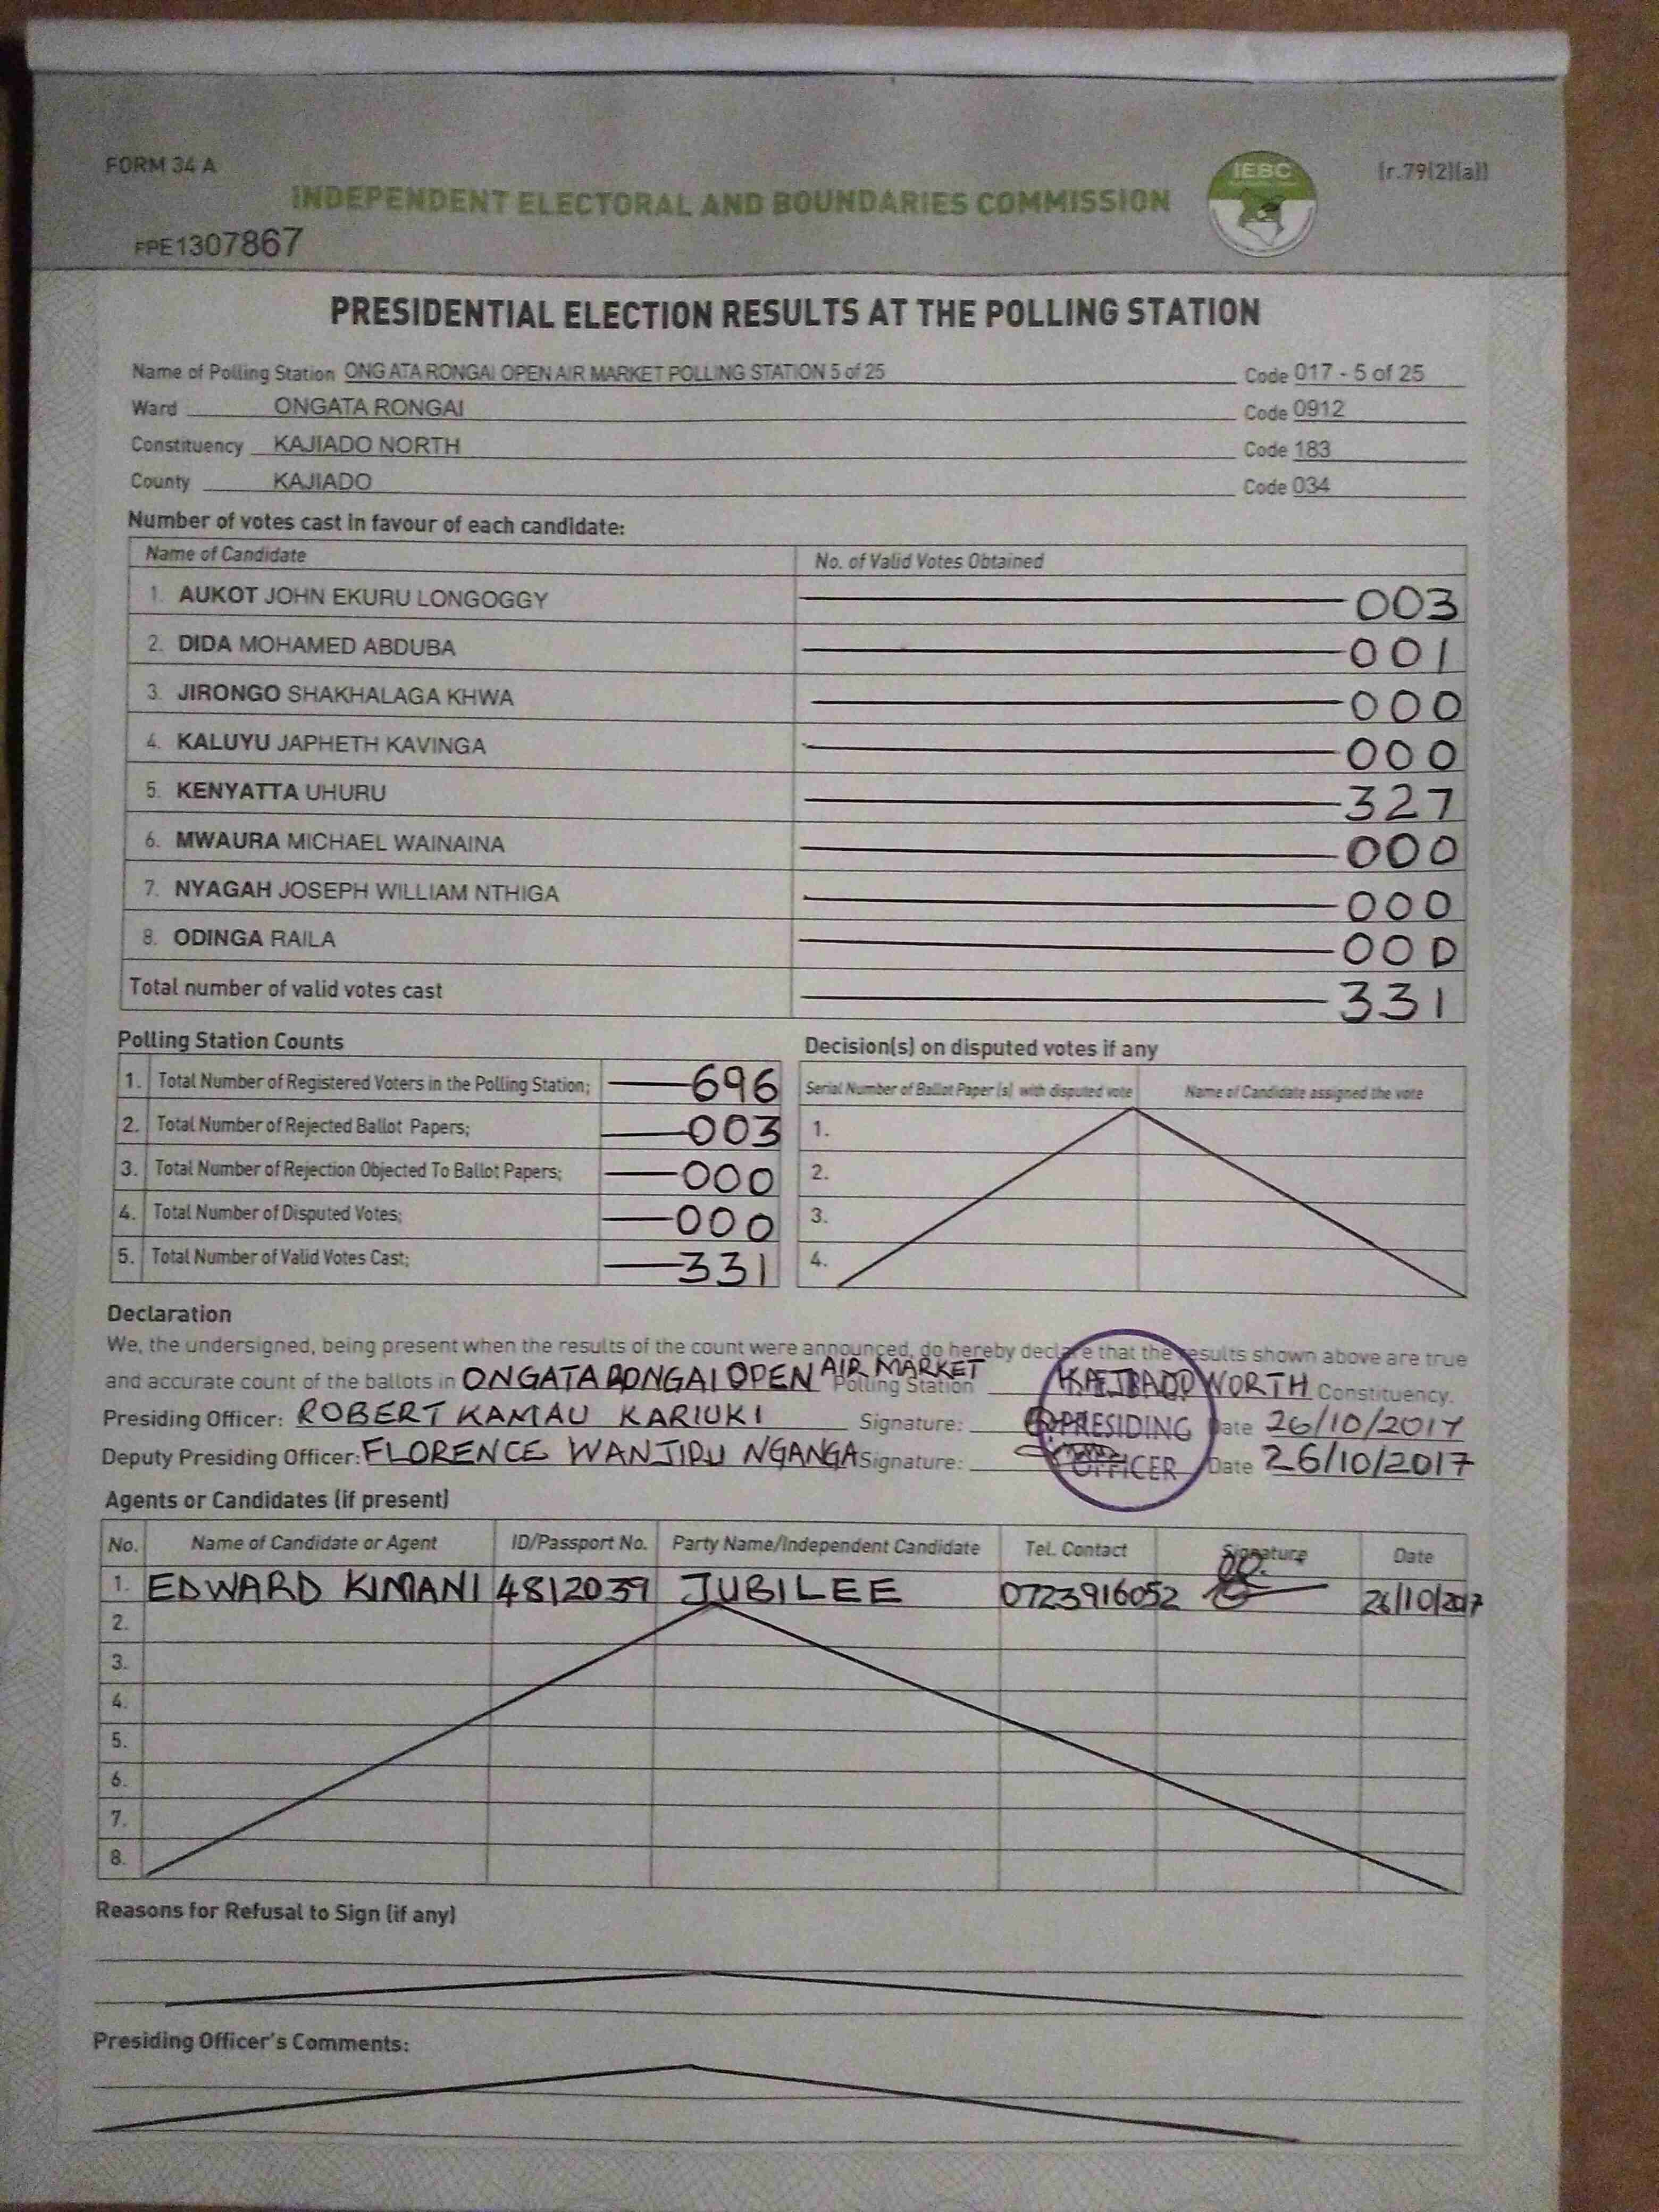 FORM 34 A
IEBC
[r.79(2)(a)]
INDEPENDENT ELECTORAL AND BOUNDARIES COMMISSION
PPE1307867
PRESIDENTIAL ELECTION RESULTS AT THE POLLING STATION
Name of Polling Station ONGATA RONGAI OPEN AIR MARKET POLLING STATION 5 of 25 Code 017 - 5 of 25
Ward ONGATA RONGAI Code 0912
Constituency KAJIADO NORTH Code 183
County KAJIADO Code 034
Number of votes cast in favour of each candidate:
Name of Candidate No. of Valid Votes Obtained
1. AUKOT JOHN EKURU LONGOGGY 003
2. DIDA MOHAMED ABDUBA 001
3. JIRONGO SHAKHALAGA KHWA 000
4. KALUYU JAPHETH KAVINGA 000
5. KENYATTA UHURU 327
6. MWAURA MICHAEL WAINAINA 000
7. NYAGAH JOSEPH WILLIAM NTHIGA 000
8. ODINGA RAILA 000
Total number of valid votes cast 331
Polling Station Counts
1. Total Number of Registered Voters in the Polling Station; 696
2. Total Number of Rejected Ballot Papers; 003
3. Total Number of Rejection Objected To Ballot Papers; 000
4. Total Number of Disputed Votes; 000
5. Total Number of Valid Votes Cast; 331
Decision(s) on disputed votes if any
Serial Number of Ballot Paper (s) with disputed vote Name of Candidate assigned the vote
1.
2.
3.
4.
Declaration
We, the undersigned, being present when the results of the count were announced, do hereby declare that the results shown above are true
and accurate count of the ballots in ONGATA RONGAI OPEN AIR MARKET Polling Station KAJIADO NORTH Constituency.
Presiding Officer: ROBERT KAMAU KARIUKI Signature: Date 26/10/2017
Deputy Presiding Officer: FLORENCE WANJIRU NGANGA Signature: Date 26/10/2017
PRESIDING
OFFICER
Agents or Candidates (if present)
No. Name of Candidate or Agent ID/Passport No. Party Name/Independent Candidate Tel. Contact Signature Date
1. EDWARD KIMANI 4812039 JUBILEE 0723916052 26/10/2017
2.
3.
4.
5.
6.
7.
8.
Reasons for Refusal to Sign (if any)
Presiding Officer's Comments: